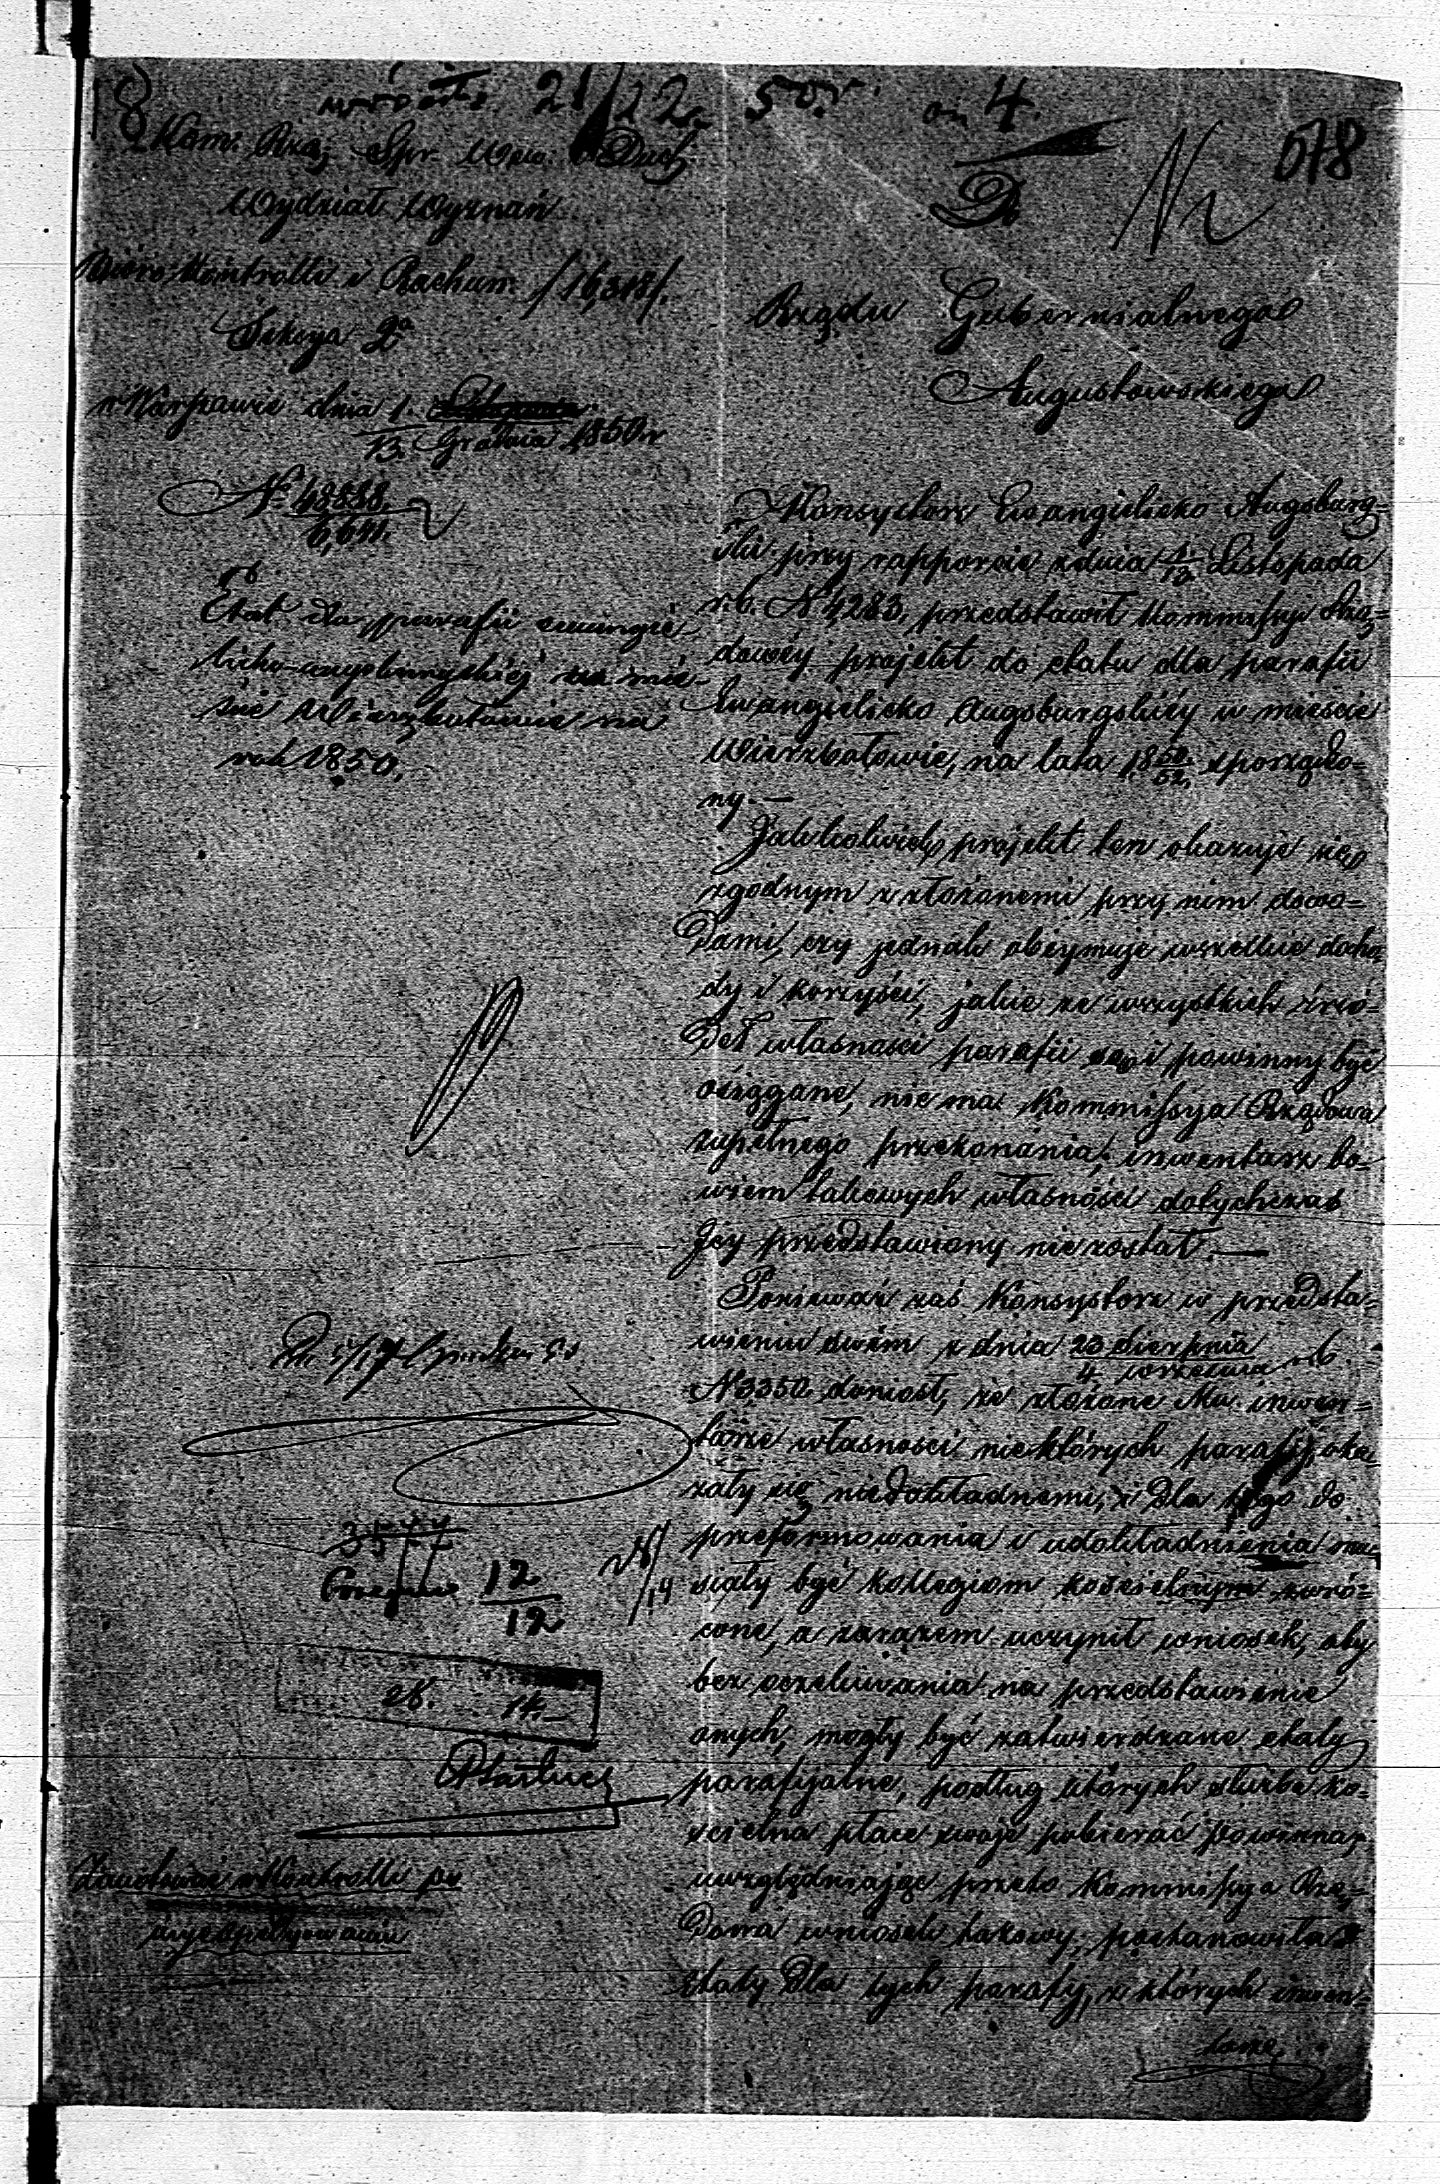 18
21/12 50 r. 4.
578
Kom. Rząj. Spr. Wew. i Duch.
Wydział Wyznań
Biuro Kontrolli i Rachun. /16,318/.
Sekcya 2a
w Warszawie dnia 1.
13. Grudnia 1850 r
No 48888.
6,641.
Etat dla parafii ewangie-
licko-augsburgskiéj w mie-
ście Wierzbołowie na
rok 1850.
12
12
14
Zanotować w Kontrolli po
wyexpedyowaniu
Do
Rządu Gubernialnego
Augustowskiego
Konsystorz Ewangielicko Augsburg-
ski przy rapporcie z dnia 1/13 Listopada
r.b. N 4283, przedstawił Kommissyi Rzą-
dowéy projekt do etatu dla parafii
Ewangielicko Augsburgskiéy w mieście
Wierzbołowie, na lata 18 50/52, sporządzo-
ny. —
Jakkolwiek projekt ten okazuje się
zgodnym z złożonemi przy nim dowo-
dami, czy jednak obejmuje wszelkie docho
dy i korzyści, jakie ze wszystkich źró-
deł własności parafii są i powinny być
osiągane, nie ma Kommissya Rządowa
zupełnego przekonania, inwentarz bo-
wiem takowych własności dotychczas
Jey przedstawiony nie został. —
Ponieważ zaś Konsystorz w przedsta-
wieniu swém z dnia 23 Sierpnia
4 Września r.b.
N 3350 doniósł, że złożone Mu inwen-
tarze własności niektórych parafij oka-
zały się niedokładnemi, i dla tego do
przeformowania i udokładnienia mu-
siały być kollegiom kościelnym zwró-
cone, a zarazem uczynił wniosek, aby
bez oczekiwania na przedstawienie
onych, mogły być zatwierdzane etaty
parafijalne, podług których służba ko-
ścielna płace swoje pobierać powinna,
uwzględniając przeto Kommissya Rzą-
dowa wniosek takowy, postanowiła
etaty dla tych parafij, z których inwen-
tarze